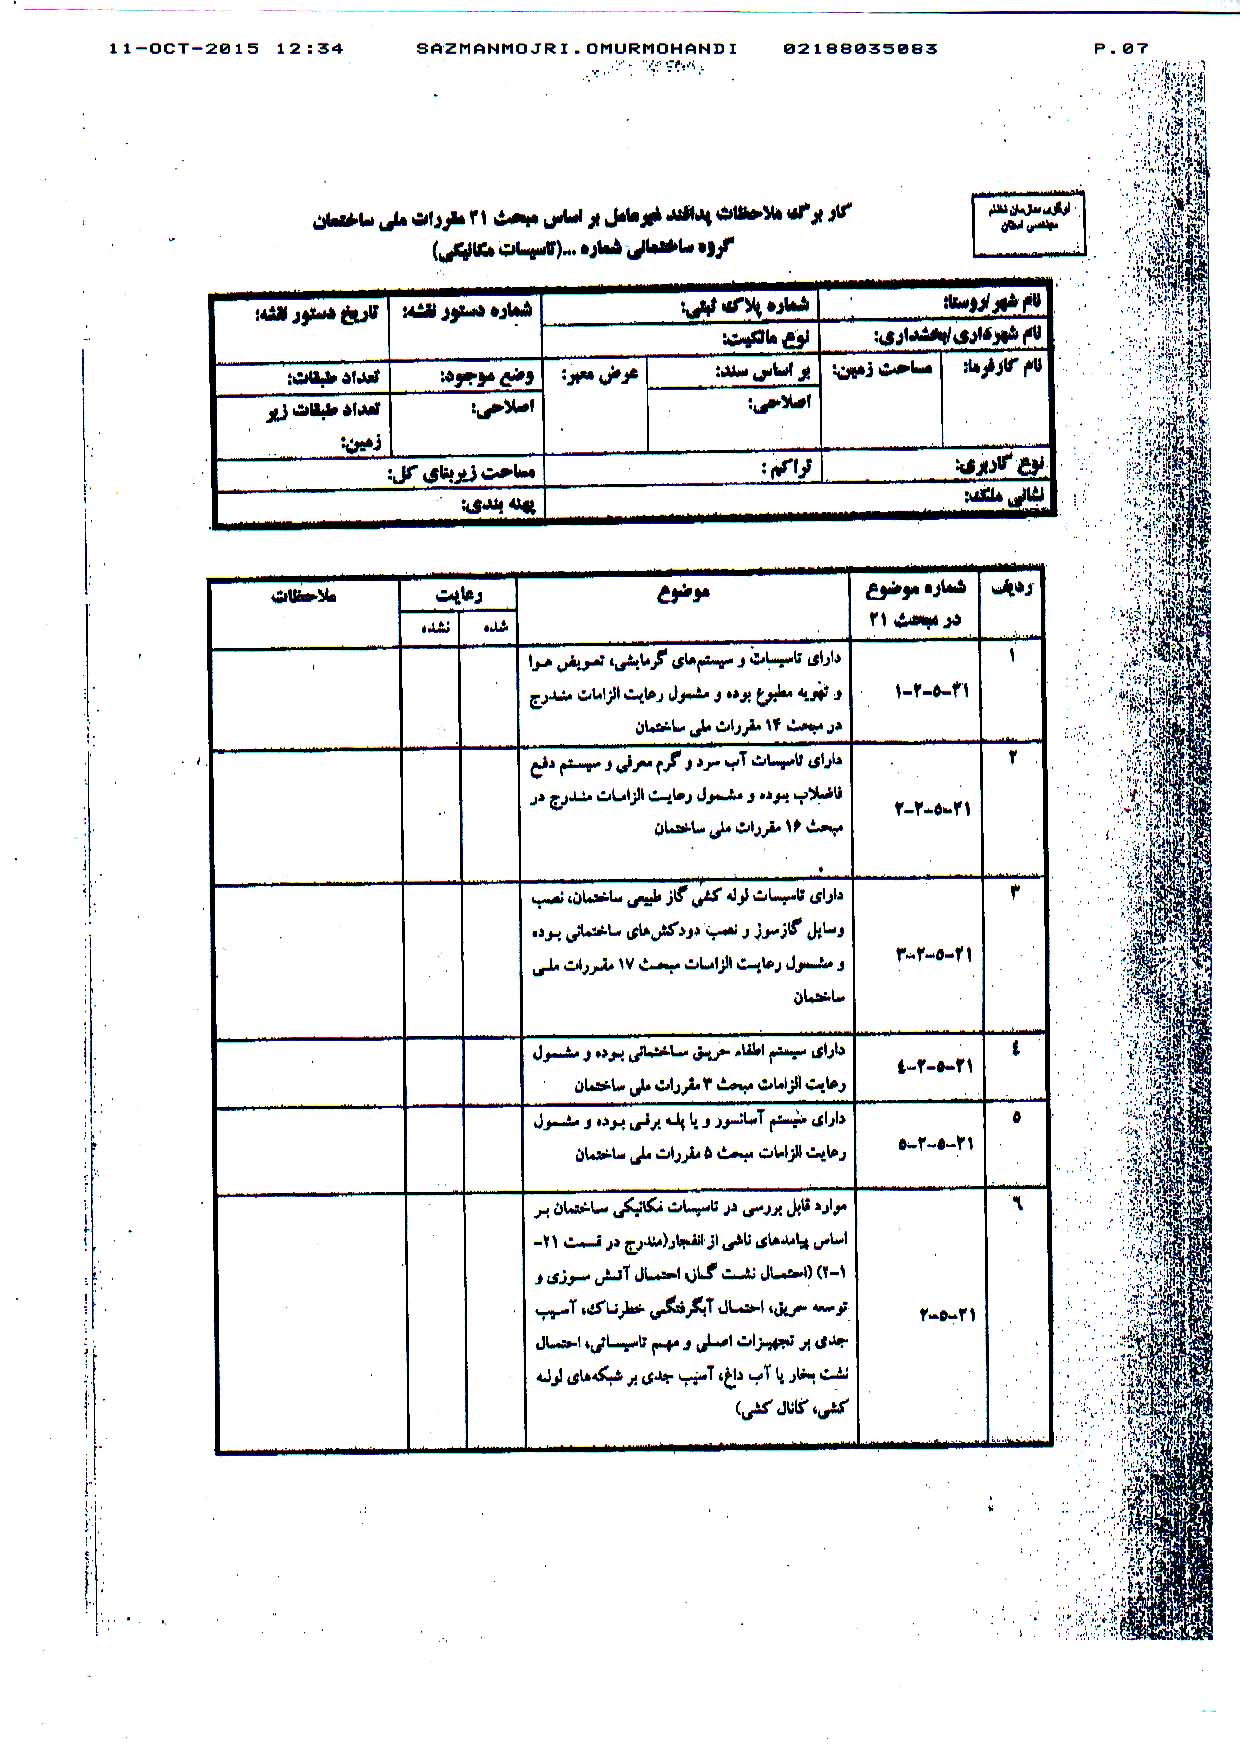 11-OCT-2015 12:34 SAZMANMOJRI.OMURMOHANDI 02188035083 P.07
سازمان نظام
مهندسی استان
کار برگ ملاحظات پدافند غیرعامل بر اساس مبحث ۲۱ مقررات ملی ساختمان
گروه ساختمانی شماره ...(تاسیسات مکانیکی)
نام شهر/روستا: شماره پلاک ثبتی: شماره دستور نقشه: تاریخ دستور نقشه:
نام شهرداری/بخشداری: نوع مالکیت:
نام کارفرما: مساحت زمین: بر اساس سند: عرض معبر: وضع موجود: تعداد طبقات:
اصلاحی: اصلاحی: تعداد طبقات زیر
زمین:
نوع کاربری: تراکم: مساحت زیربنای کل:
نشانی ملک: پهنه بندی:
ردیف شماره موضوع موضوع رعایت ملاحظات
در مبحث ۲۱ شده نشده
۱ دارای تاسیسات و سیستم‌های گرمایشی، تعویض هوا
۲۱-۵-۲-۱ و تهویه مطبوع بوده و مشمول رعایت الزامات مندرج
در مبحث ۱۴ مقررات ملی ساختمان
۲ دارای تاسیسات آب سرد و گرم مصرفی و سیستم دفع
۲۱-۵-۲-۲ فاضلاب بوده و مشمول رعایت الزامات مندرج در
مبحث ۱۶ مقررات ملی ساختمان
۳ دارای تاسیسات لوله کشی گاز طبیعی ساختمان، نصب
وسایل گازسوز و نصب دودکش‌های ساختمانی بوده
۲۱-۵-۲-۳ و مشمول رعایت الزامات مبحث ۱۷ مقررات ملی
ساختمان
٤ دارای سیستم اطفاء حریق ساختمانی بوده و مشمول
۲۱-۵-۲-٤ رعایت الزامات مبحث ۳ مقررات ملی ساختمان
۵ دارای سیستم آسانسور و یا پله برقی بوده و مشمول
۲۱-۵-۲-۵ رعایت الزامات مبحث ۵ مقررات ملی ساختمان
٦ موارد قابل بررسی در تاسیسات مکانیکی ساختمان بر
اساس پیامدهای ناشی از انفجار(مندرج در قسمت ۲۱-
۱-۲) (احتمال نشت گاز، احتمال آتش سوزی و
۲۱-۵-۲ توسعه حریق، احتمال آبگرفتگی خطرناک، آسیب
جدی بر تجهیزات اصلی و مهم تاسیساتی، احتمال
نشت بخار یا آب داغ، آسیب جدی بر شبکه‌های لوله
کشی، کانال کشی)